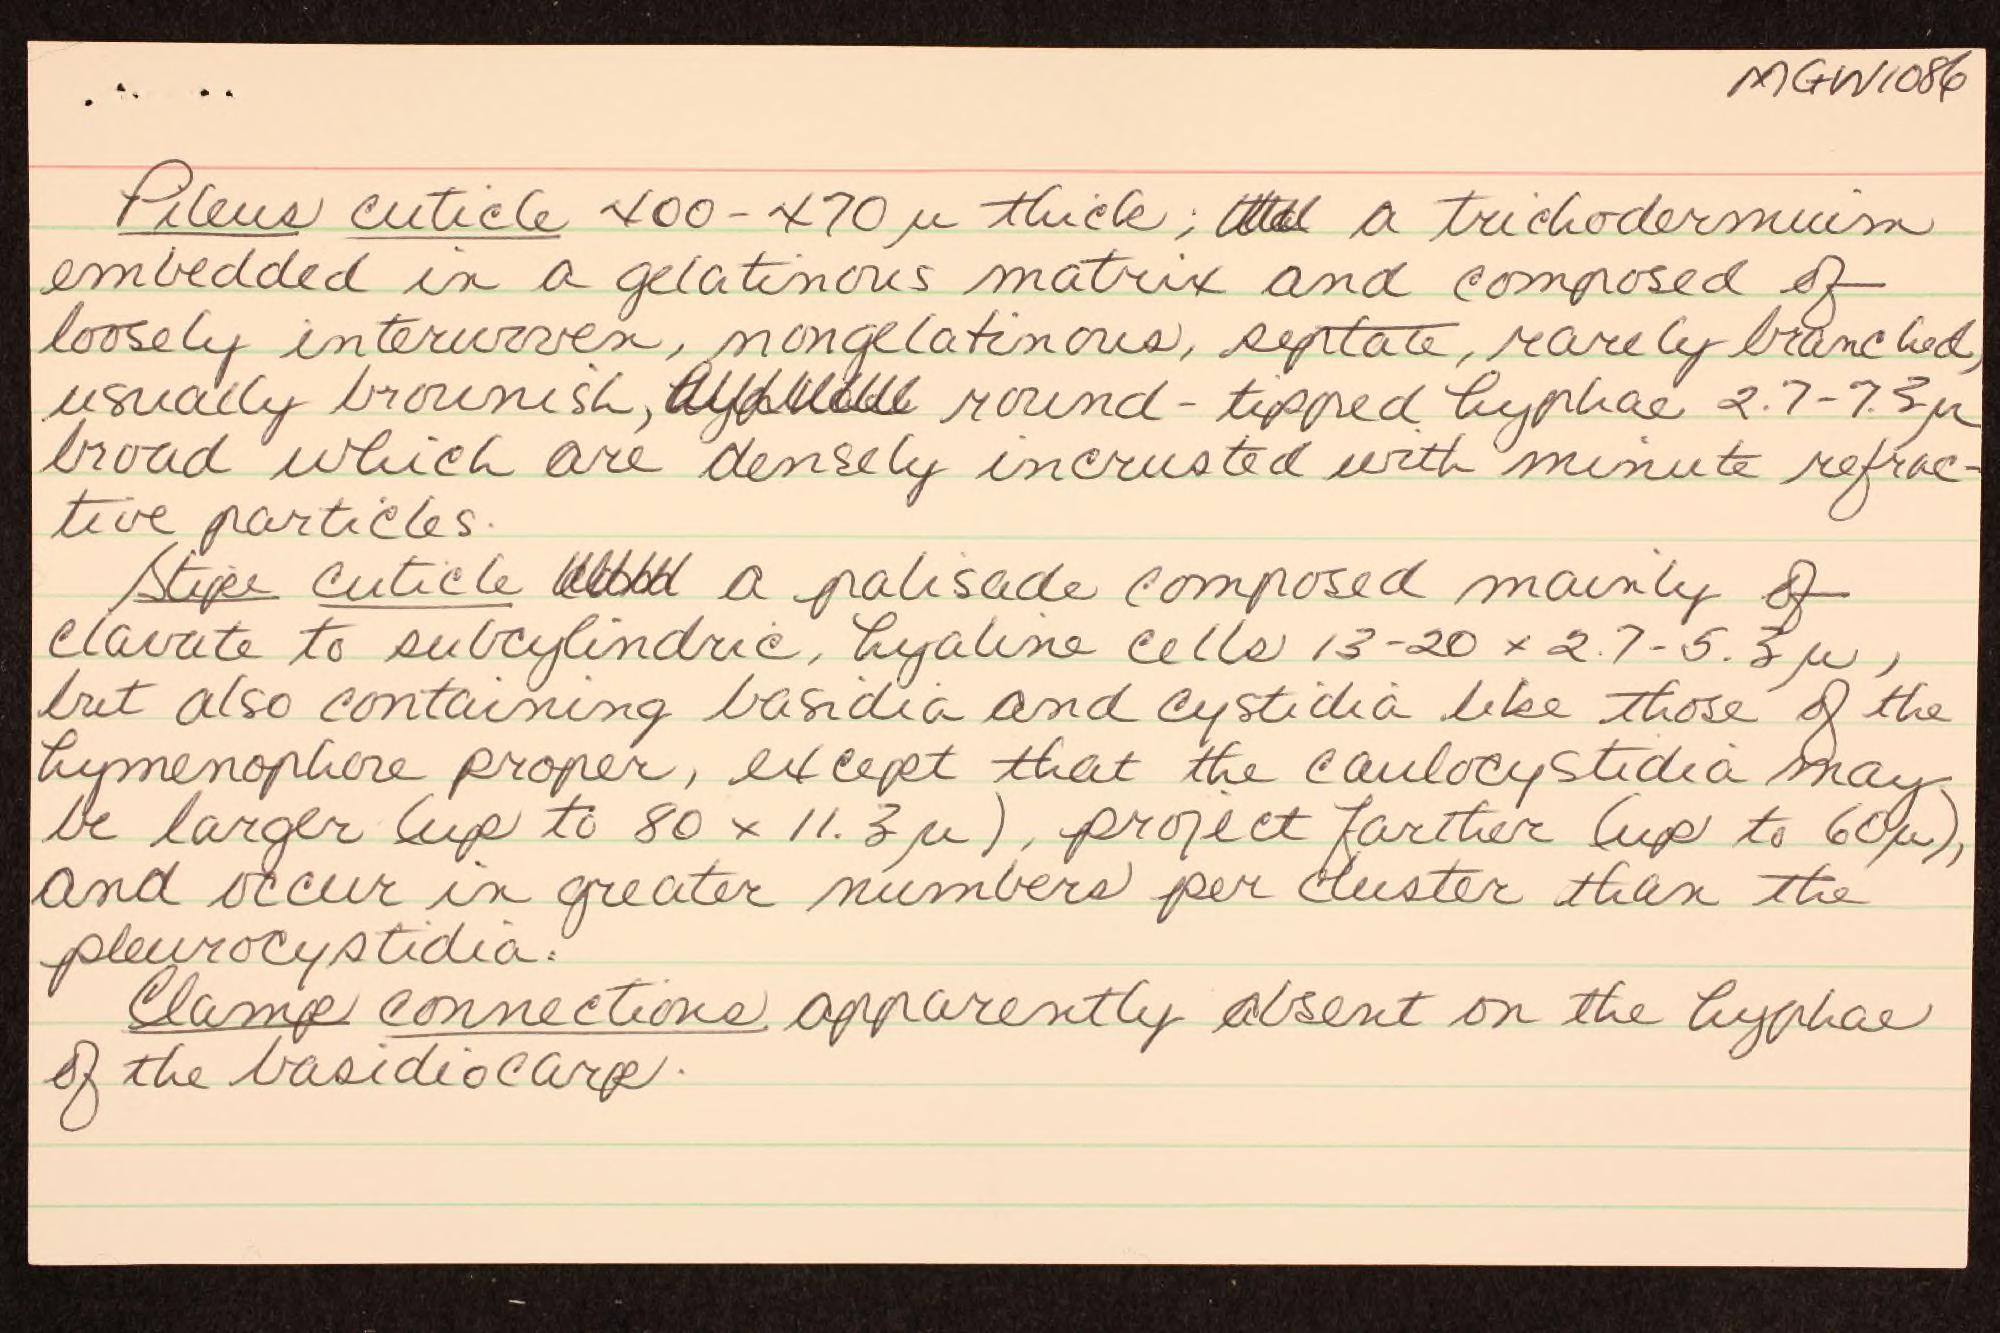 MGW1086
Pileus cuticle 400-470 μ thick; a trichodermium
embedded in a gelatinous matrix and composed of
loosely interwoven, nongelatinous, septate, rarely branched,
usually brownish, round-tipped hyphae 2.7-7.3 μ
broad which are densely incrusted with minute refrac-
tive particles.
Stipe cuticle a palisade composed mainly of
clavate to subcylindric, hyaline cells 13-20 × 2.7-5.3 μ,
but also containing basidia and cystidia like those of the
hymenophore proper, except that the caulocystidia may
be larger (up to 80 × 11.3 μ), project farther (up to 60 μ),
and occur in greater numbers per cluster than the
pleurocystidia.
Clamp connections apparently absent on the hyphae
of the basidiocarp.